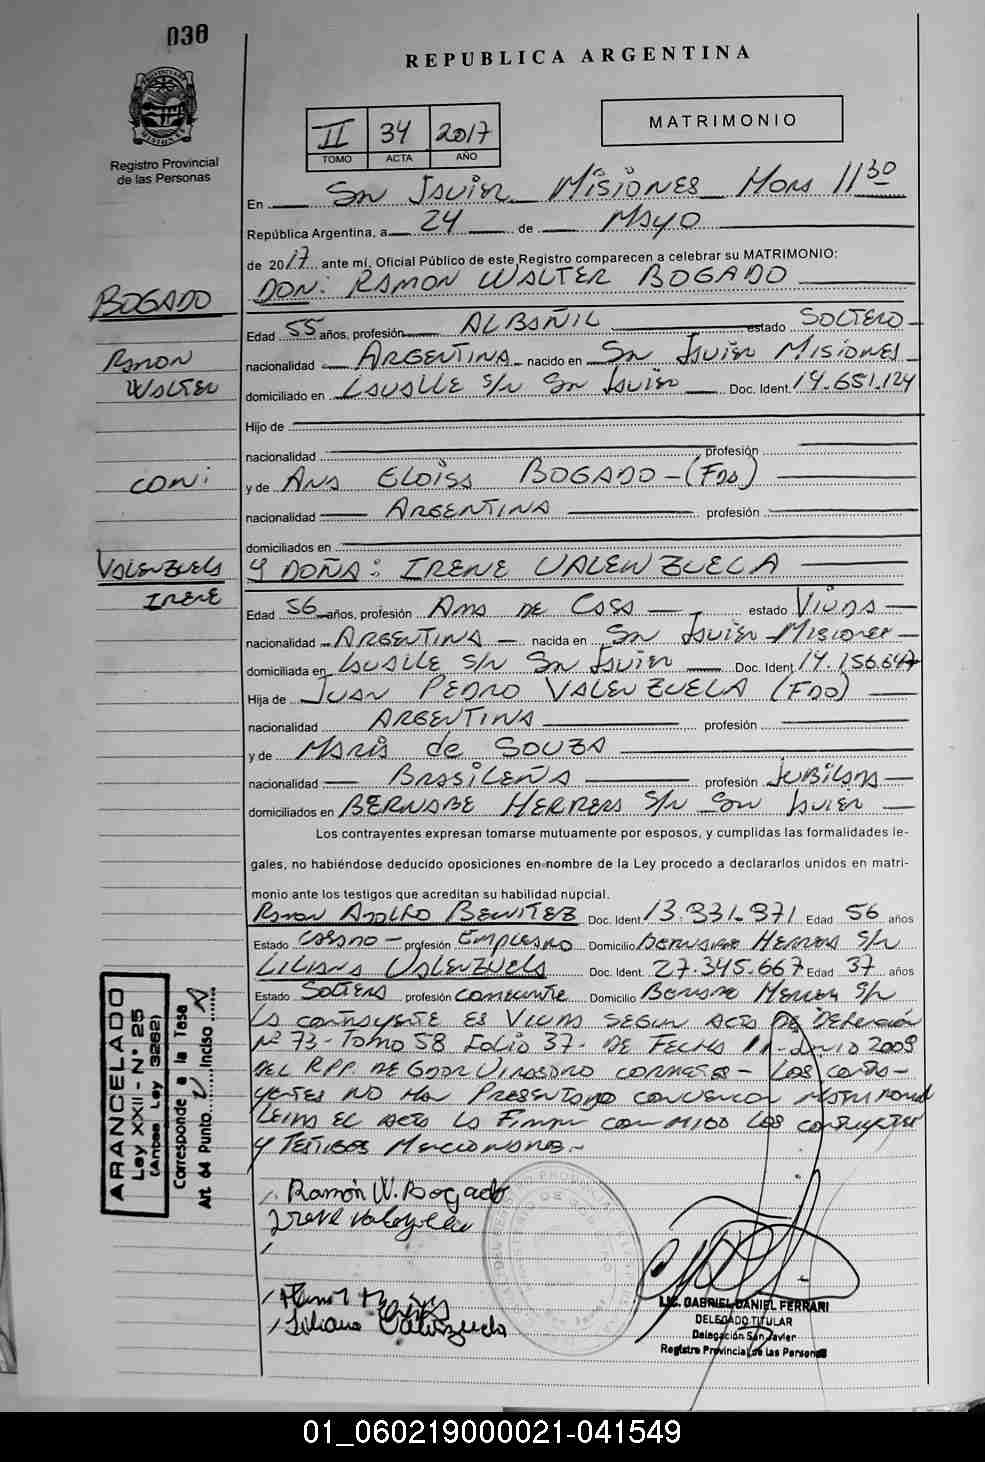 038
REPUBLICA ARGENTINA
Registro Provincial
de las Personas
II 34 2017
TOMO ACTA AÑO
MATRIMONIO
En San Javier Misiones Hora 11 30
República Argentina, a 24 de Mayo
de 2017 ante mí, Oficial Público de este Registro comparecen a celebrar su MATRIMONIO:
DON: RAMON WALTER BOGADO
BOGADO
Ramon
Walter
con:
Valenzuela
Irene
Edad 55 años, profesión ALBAÑIL estado SOLTERO
nacionalidad ARGENTINA nacido en San Javier Misiones
domiciliado en Lavalle s/n San Javier Doc. Ident. 14.651.124
Hijo de
nacionalidad profesión
y de Ana Eloisa BOGADO - (Fdo)
nacionalidad ARGENTINA profesión
domiciliados en
Y DOÑA: IRENE VALENZUELA
Edad 56 años, profesión Ama de Casa estado Viuda
nacionalidad ARGENTINA nacida en San Javier - Misiones
domiciliada en Lavalle s/n San Javier Doc. Ident. 14.156.647
Hija de JUAN PEDRO VALENZUELA (FDO)
nacionalidad ARGENTINA profesión
y de Maria de SOUZA
nacionalidad Brasileña profesión Jubilada
domiciliados en BERNABE HERRERA s/n San Javier
Los contrayentes expresan tomarse mutuamente por esposos, y cumplidas las formalidades le-
gales, no habiéndose deducido oposiciones en nombre de la Ley procedo a declararlos unidos en matri-
monio ante los testigos que acreditan su habilidad nupcial.
Ramon Adolfo BENITEZ Doc. Ident. 13.931.971 Edad 56 años
Estado Casado - profesión Empleado Domicilio Bernabe Herrera s/n
Liliana Valenzuela Doc. Ident. 27.345.667 Edad 37 años
Estado Soltera profesión comerciante Domicilio Bernabe Herrera s/n
La contrayente es Viuda segun Acta de Defunción
Nº 73 - Tomo 58 Folio 37 - de Fecha Junio 2009
del RPP. de Gdor Virasoro Corrientes - Los contra-
yentes no han Presentado convención matrimonial
Leida el Acta la Firman conmigo los contrayentes
y Testigos Mencionados -
ARANCELADO
Ley XXII - Nº 25
(Antes Ley 3262)
Corresponde a la Tasa
Art. 64 Punto Inciso
Ramón W. Bogado
Irene Valenzuela
Liliana Valenzuela
LIC. GABRIEL DANIEL FERRARI
DELEGADO TITULAR
Delegación San Javier
Registro Provincial de las Personas
01_060219000021-041549